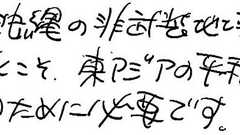 縄の非武装地帯
こそ、東アジアの平和
のために必要です。